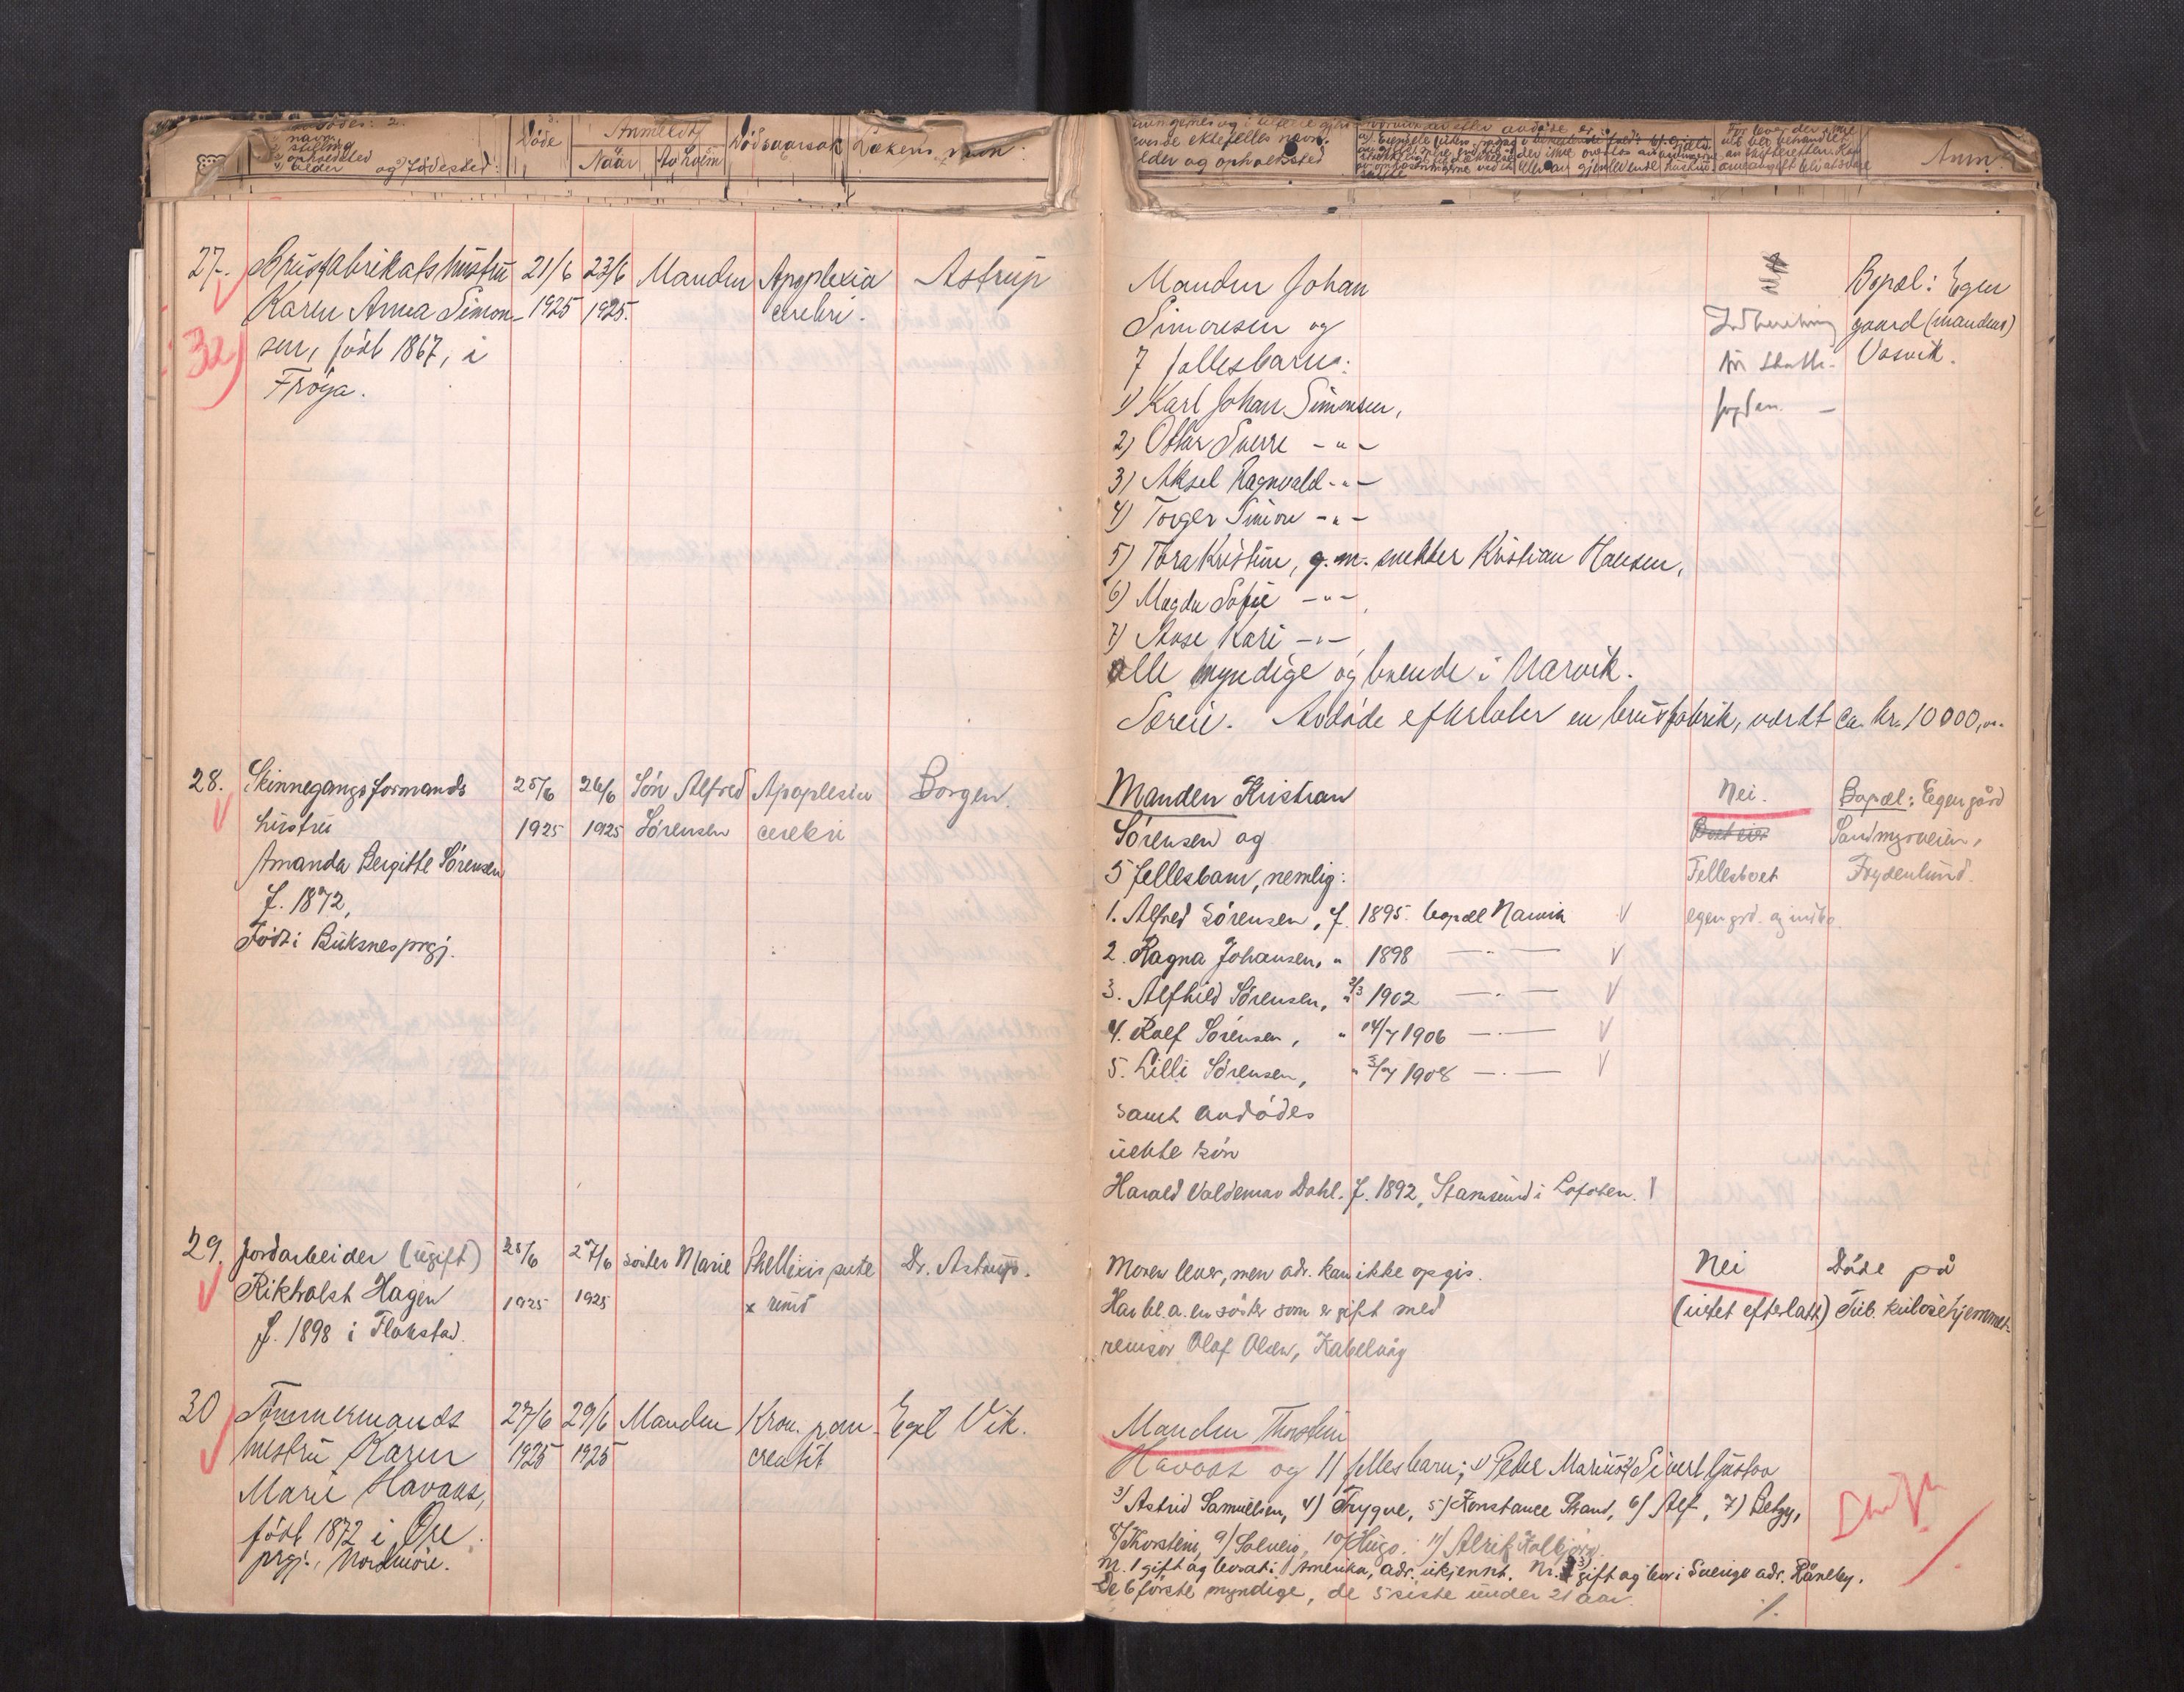 navn,
stilling
opholdssted
alder og fødested:
Døde
Anmeldt
Naar
Av hvem
Dødsaarsak
Lækens navn:
evende ektefelles navn.
alder og opholdssted
Anm.
27. Brusfabrikatshustru 21/6 23/6 Manden Apoplexia Astrup
Karen Anna Simon- 1925 1925. cerebri.
32) sen, født 1867, i
Frøya.
Manden Johan
Simonsen og
7 fellesbarn:
1) Karl Johan Simonsen,
2) Ottar Sverre -"-
3) Aksel Ragnvald -"-
4) Torger Simon -"-
5) Tora Kristine, g. m. snekker Kristian Hansen,
6) Magda Sofie -"-
7) Aase Kari -"-
alle myndige og boende i Narvik.
Særeie. Avdøde efterlater en brusfabrik, værdt ca. kr. 10000,00.
Indberetning
til skatte-
fogden. -
Bopæl: Egen
gaard (mandens)
Vasvik.
28. Skinnegangsformands 25/6 26/6 Søn Alfred Apoplexia Borgen.
hustru 1925 1925 Sørensen cerebri
Amanda Bergitte Sørensen
f. 1872,
Født i Buksnes prgj.
Manden Kristian
Sørensen og
5 fellesbarn, nemlig:
1. Alfred Sørensen, f. 1895. bopæl Narvik
2. Ragna Johansen, " 1898 -"-
3. Alfhild Sørensen, " 3/3 1902 -"-
4. Rolf Sørensen, " 14/7 1906 -"-
5. Lilli Sørensen, " 5/7 1908 -"-
samt avdødes
uekte søn
Harald Valdemar Dahl. f. 1892, Stamsund i Lofoten.
Nei.
Boet eier
Fellesboet
egen grd. og indbo.
Bopæl: Egen gård
Sandmyrveien,
Frydenlund.
29. Jordarbeider (ugift) 25/6 27/6 søster Marie Dr. Astrup.
Rikholdt Hagen 1925 1925
f. 1898 i Flakstad.
Moren lever, men adr. kan ikke opgis.
Har bl. a. en søster som er gift med
revisor Olaf Olsen, Kabelvåg
Nei
(intet efterlatt)
Døde på
Tub. kulosehjemmet.
30 Tømmermands 27/6 29/6 Manden Kron. pan- Egil Vik.
hustru Karen 1925 1925 creatit
Marie Havaas,
født 1872 i Øre
prgj., Nordmøre.
Manden Thorstein
Havaas og 11 fellesbarn; 1) Peder Marius 2) Sivert Gustav
3) Astrid Samuelsen, 4) Trygve, 5) Konstance Strand, 6) Alf, 7) Betzy,
8) Thorstein, 9) Solveig, 10) Hugo. 11) Alrik Kolbjørn.
Nr. 1 gift og bosat i Amerika, adr. ukjennt. Nr. 3 gift og bor i Sverige adr. Råneby.
De 6 første myndige, de 5 siste under 21 aar.